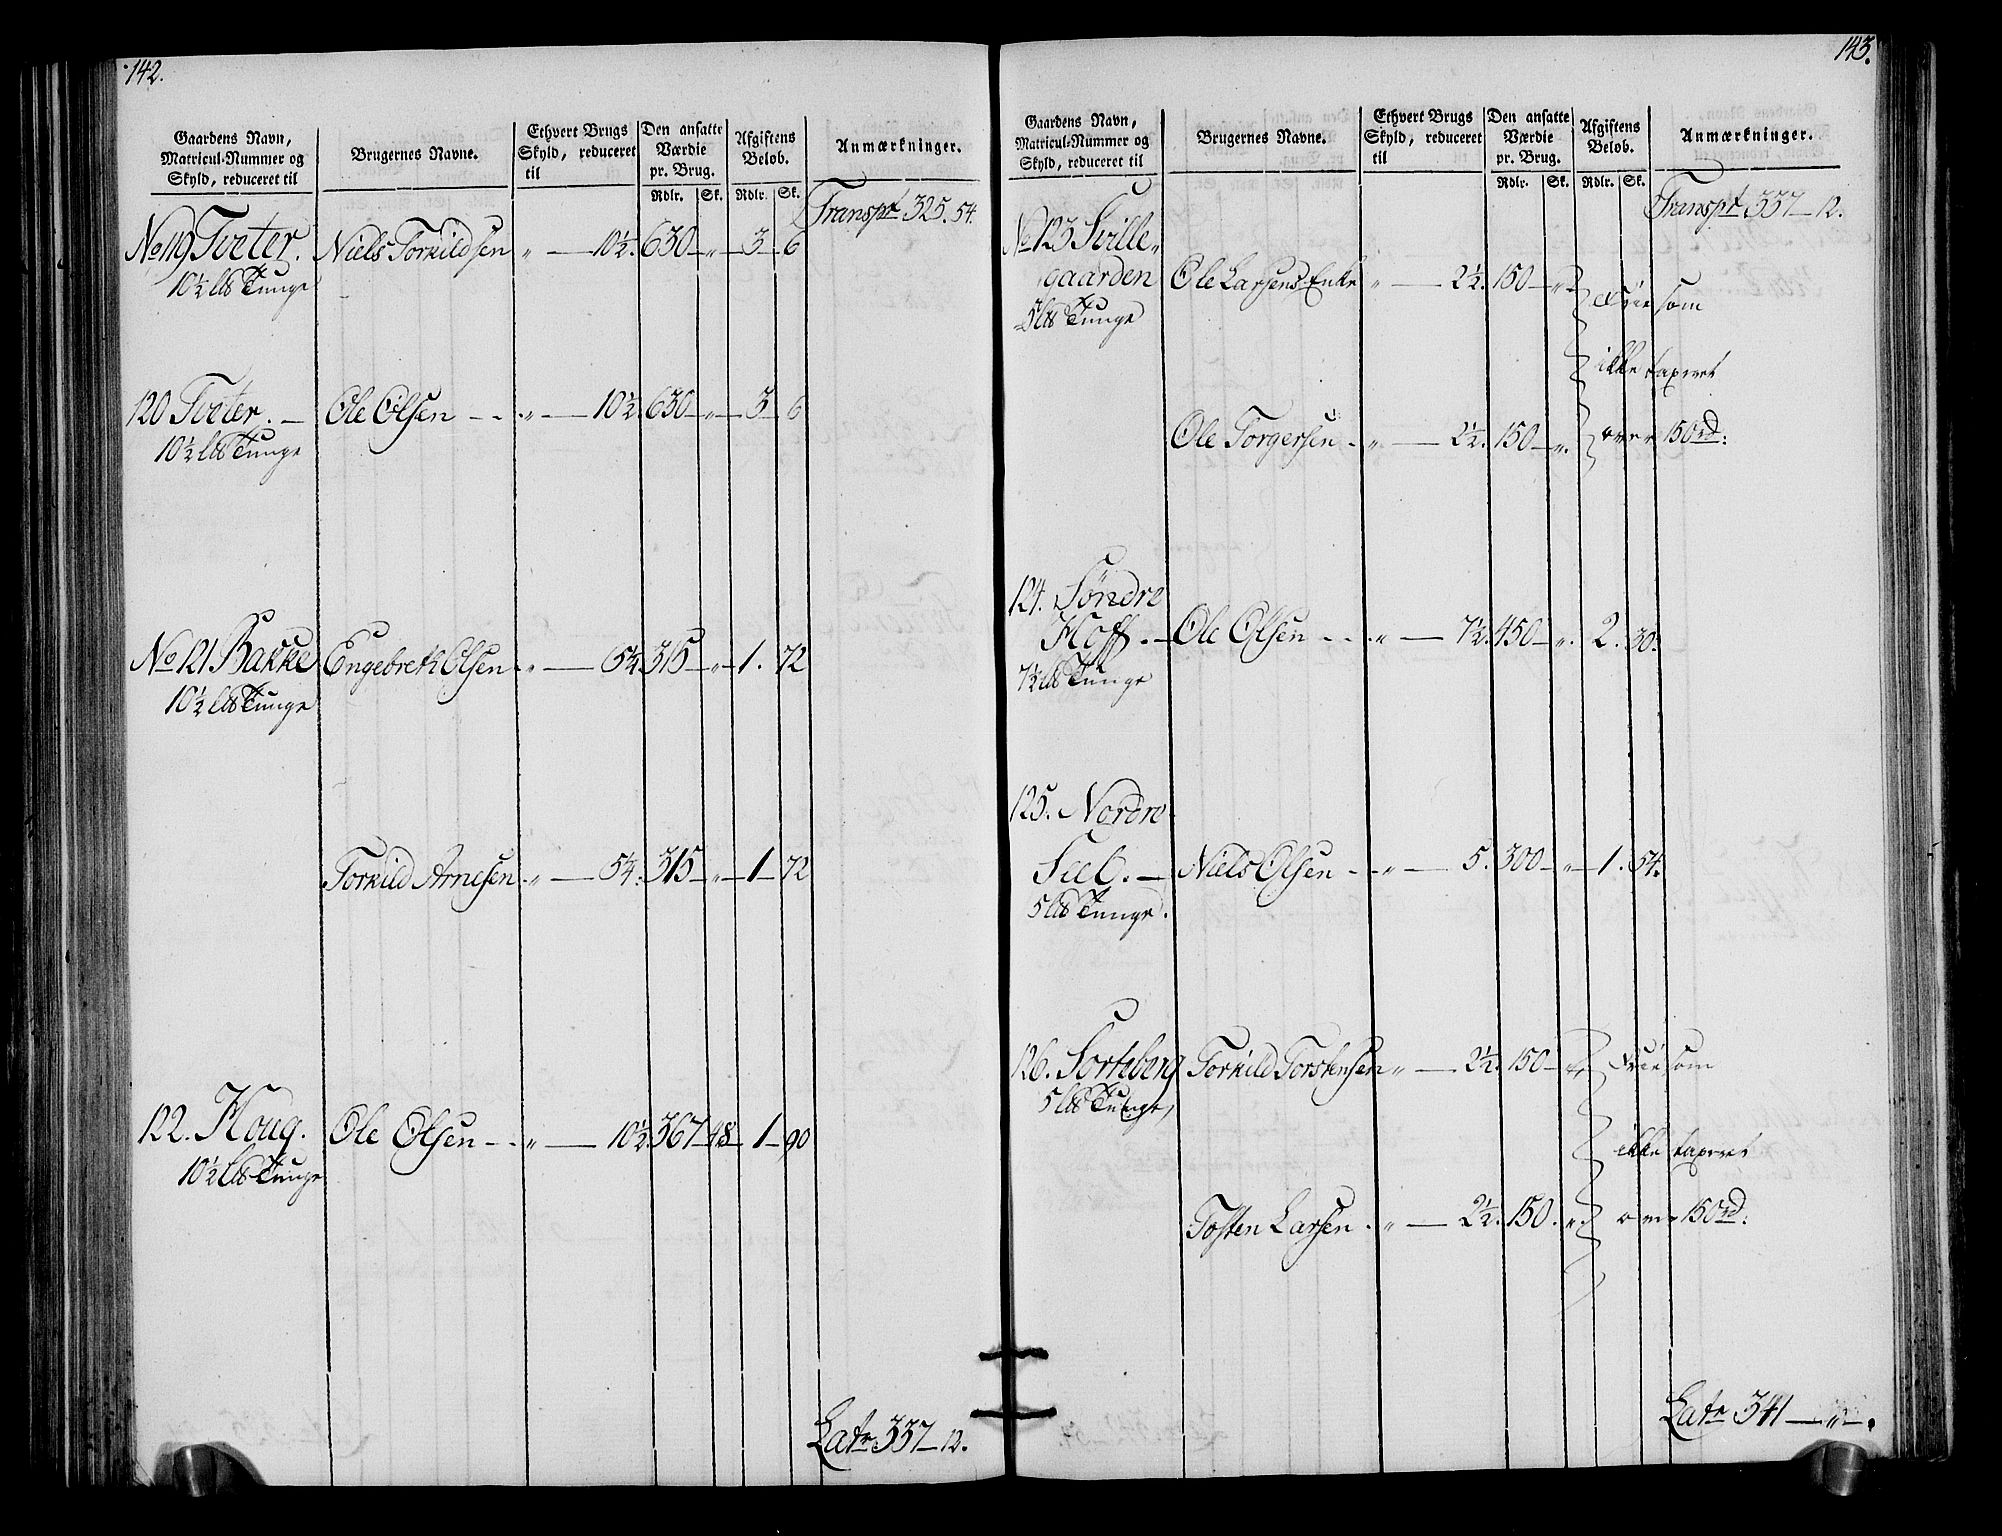 142.
Gaardens Navn, Matricul-Nummer og Skyld, reduceret til | Brugernes Navne. | Ethvert Brugs Skyld, reduceret til | Den ansatte Værdie pr. Brug. Rdlr. Sk. | Afgiftens Beløb. Rdlr. Sk. | Anmærkninger.
Transpt 325. 54.
No 119 Tveter. Niels Torkildsen „ — 10½. 630 — „ — 3 — 6
10½ L℔ Tunge
120 Tveter. — Ole Olsen — „ — 10½. 630 — „ — 3 — 6
10½ L℔ Tunge
No 121 Bakke Engebreth Olsen „ — 5¼. 315 — „ — 1. 72
10½ L℔ Tunge
Torkild Arnesen „ — 5¼. 315 — „ — 1 — 72
122. Houg. Ole Olsen — „ — 10½. 367 — 48 — 1 — 90
10½ L℔ Tunge
Latr 337 — 12.
143.
Gaardens Navn, Matricul-Nummer og Skyld, reduceret til | Brugernes Navne. | Ethvert Brugs Skyld, reduceret til | Den ansatte Værdie pr. Brug. Rdlr. Sk. | Afgiftens Beløb. Rdlr. Sk. | Anmærkninger.
Transpt 337 — 12.
No 123 Sville-
gaarden Ole Larsens Enke „ — 2½. 150 — „
5 L℔ Tunge
frie som
ikke taxeret
Ole Torgersen — „ — 2½. 150 — „. over 150 rd:
124. Søndre
Hoff. — Ole Olsen — „ — 7½. 450 — „. 2. 30.
7½ L℔ Tunge
125. Nordre
Seel. — Niels Olsen — „ — 5. 300 — „ — 1. 54.
5 L℔ Tunge.
126. Sorteberg Torkild Torstensen „ — 2½. 150 — „ frie som
5 L℔ Tunge,
ikke taxeret
Tosten Larsen — „ — 2½. 150. „. over 150 rd:
Latr 341 — „ — .